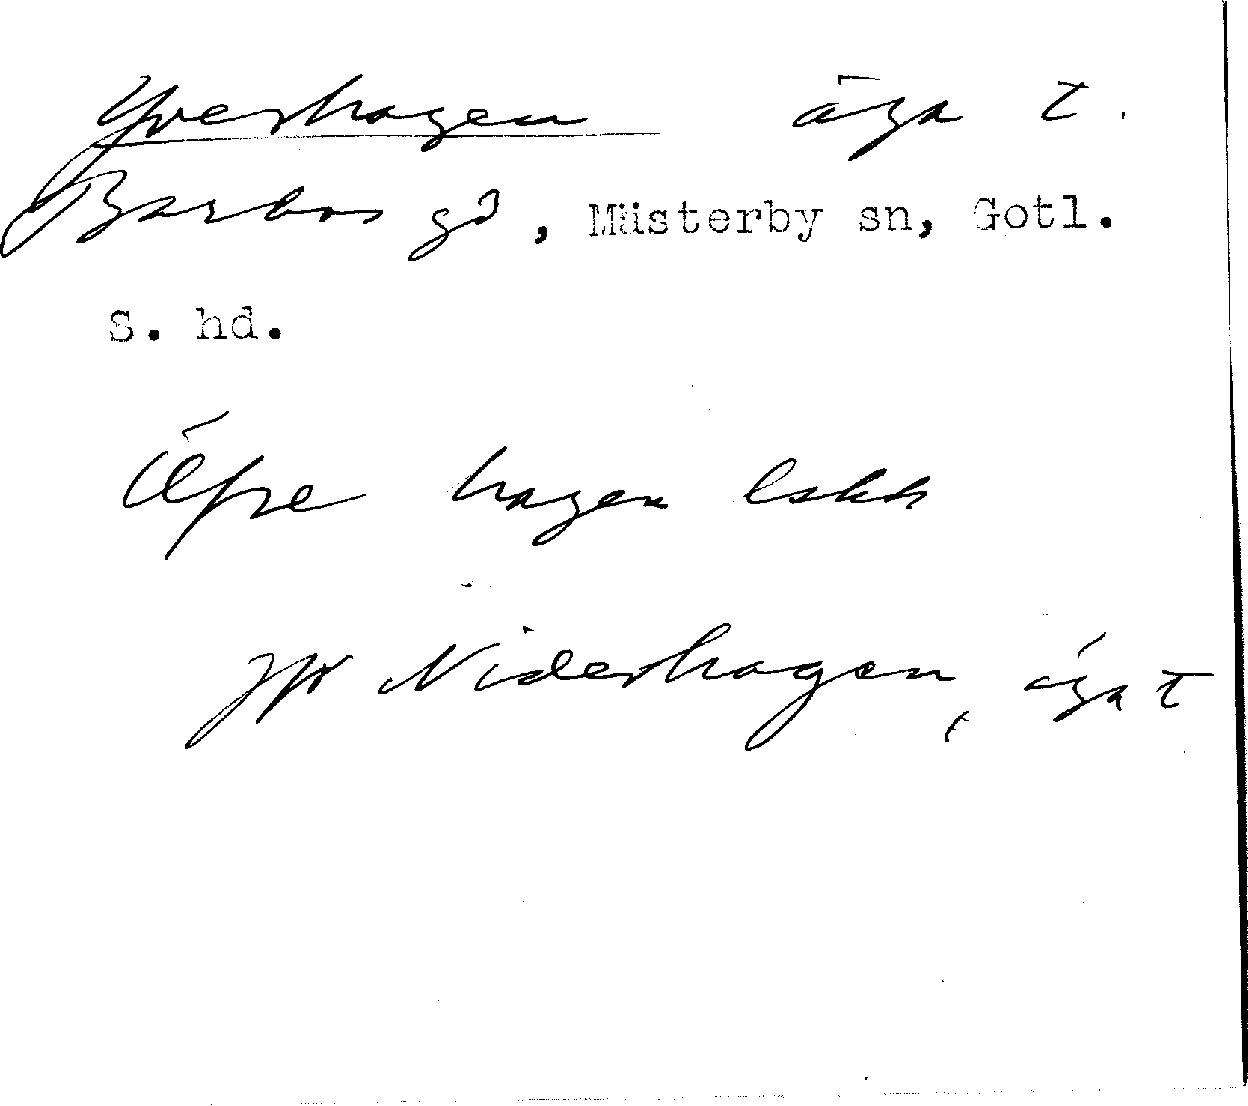 Yverhagen äga t.
Barbos gd, Mästerby sn, Gotl.
S. hd.
Öfre hagen Eskk
jfr Niderhagen, äga t